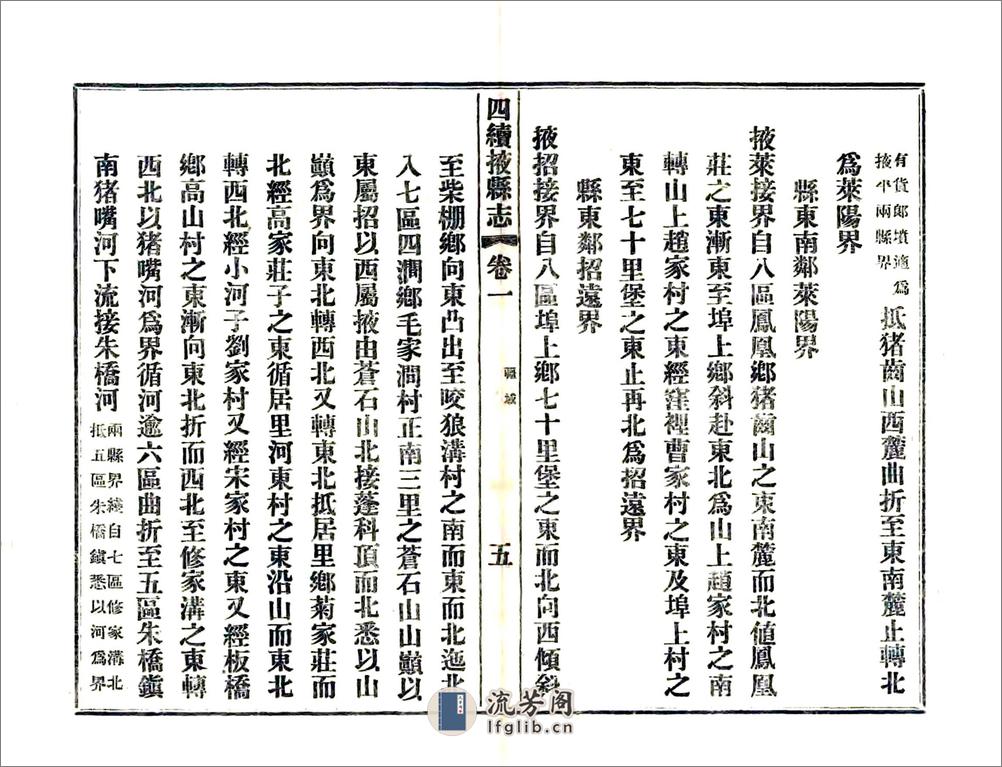 有貨郎墳適爲
掖平兩縣界
抵猪齒山西麓曲折至東南麓止轉北
爲萊陽界
縣東南鄰萊陽界
掖萊接界自八區鳳凰鄉猪齒山之東南麓而北値鳳凰
莊之東漸東至埠上鄉斜赴東北爲山上趙家村之南
轉山上趙家村之東經窪裡曹家村之東及埠上村之
東至七十里堡之東止再北爲招遠界
縣東鄰招遠界
掖招接界自八區埠上鄉七十里堡之東而北向西傾斜
四續掖縣志
卷一
疆域
五
至柴棚鄉向東凸出至咬狼溝村之南而東而北迤北
入七區四澗鄉毛家澗村正南三里之蒼石山山巔以
東屬招以西屬掖由蒼石山北接蓬科頂而北悉以山
巔爲界向東北轉西北又轉東北抵居里鄉菊家莊而
北經高家莊子之東循居里河東村之東沿山而東北
轉西北經小河子劉家村又經宋家村之東又經板橋
鄉高山村之東漸向東北折而西北至修家溝之東轉
西北以猪嘴河爲界循河逾六區曲折至五區朱橋鎭
南猪嘴河下流接朱橋河
兩縣界綫自七區修家溝北
抵五區朱橋鎭悉以河爲界
流芳阁
lfglib.cn